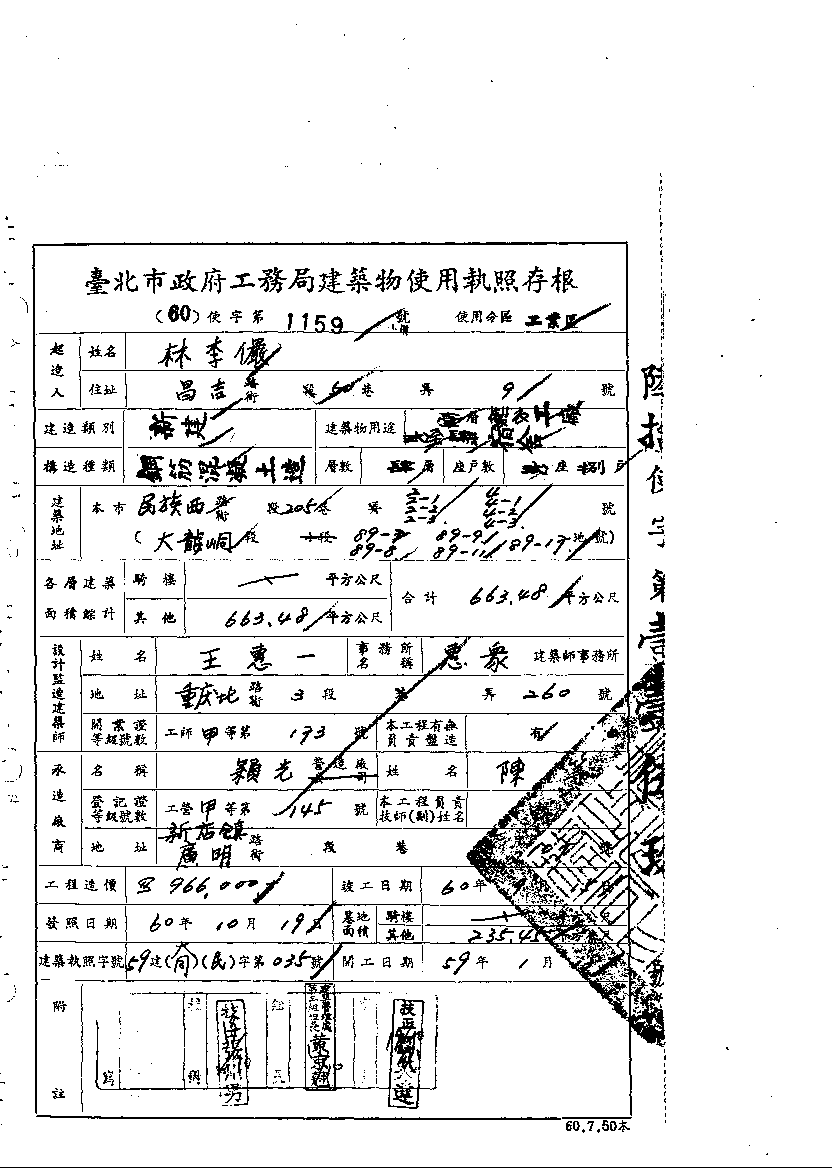 臺北市政府工務局建築物使用執照存根
(60)使字第 1159 號 使用分區 工業區
起造人 姓名 林李儼
住址 昌吉 路街 段 60 巷 弄 9 號
建造類別 新建 建築物用途
構造種類 鋼筋混凝土造 層數 肆 層 座戶數 座 捌 戶
建築地址 本市 民族西 路街 段 205 巷 弄 2-1 2-2 2-3 4 4-1 4-2 4-3 號
(大龍峒 段 小段 89-8 89-9 89-11 89-17 地號)
各層建築面積綜計 騎樓 平方公尺
其他 663.48 平方公尺 合計 663.48 平方公尺
設計監造建築師 姓名 王惠一 事務所名稱 惠眾 建築師事務所
地址 重庆北 路街 3 段 巷 弄 260 號
開業證等級號數 工師 甲 等第 193 號 本工程有無負責監造 有
承造廠商 名稱 穎光 營造廠 姓名 陳
登記證等級號數 工營 甲 等第 145 號 本工程負責技師(副)姓名
地址 新店鎮 廣明 路街 段 巷
工程造價 966,000 竣工日期 60 年
發照日期 60 年 10 月 19 日 基地面積 騎樓
其他 235.45
建築執照字號 59 建(大同)(民)字第 035 號 開工日期 59 年 1 月
附註
60.7.50本
陸拾使字第壹壹伍玖號